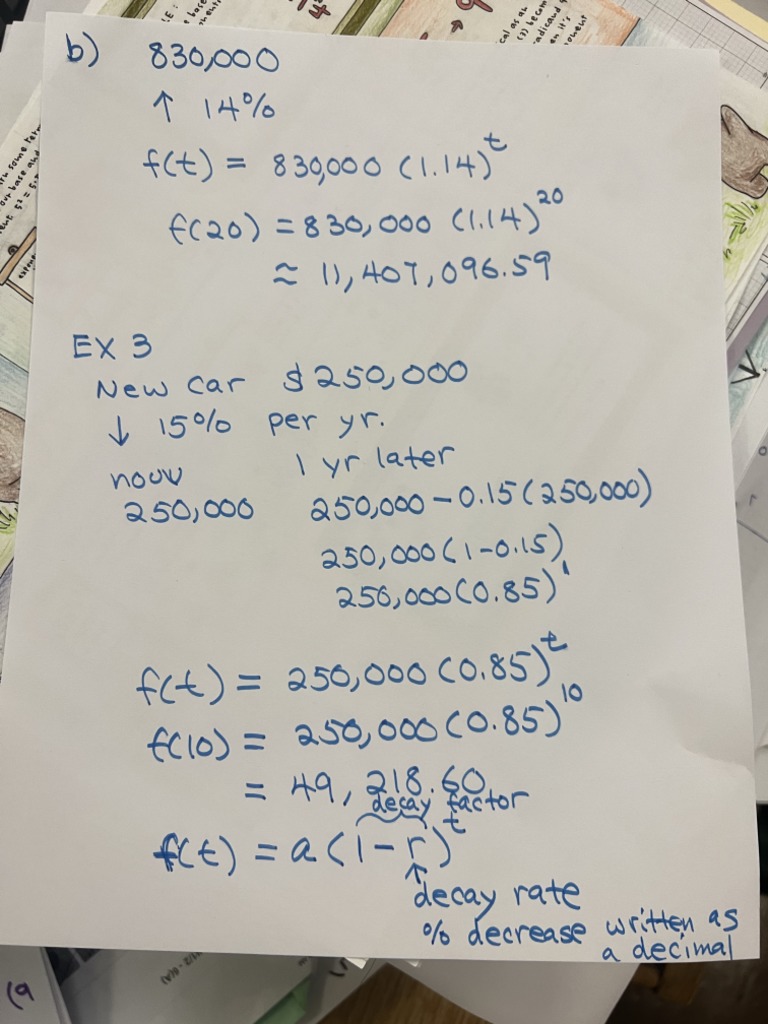 b) 830,000
↑ 14%
f(t) = 830,000 (1.14)^t
f(20) = 830,000 (1.14)^20
≈ 11,407,096.59
EX 3
New car $250,000
↓ 15% per yr.
now 1 yr later
250,000 250,000 - 0.15(250,000)
250,000(1-0.15)
250,000(0.85)^1
f(t) = 250,000(0.85)^t
f(10) = 250,000(0.85)^10
= 49,218.60
decay factor
f(t) = a(1-r)^t
↑
decay rate
% decrease written as
a decimal